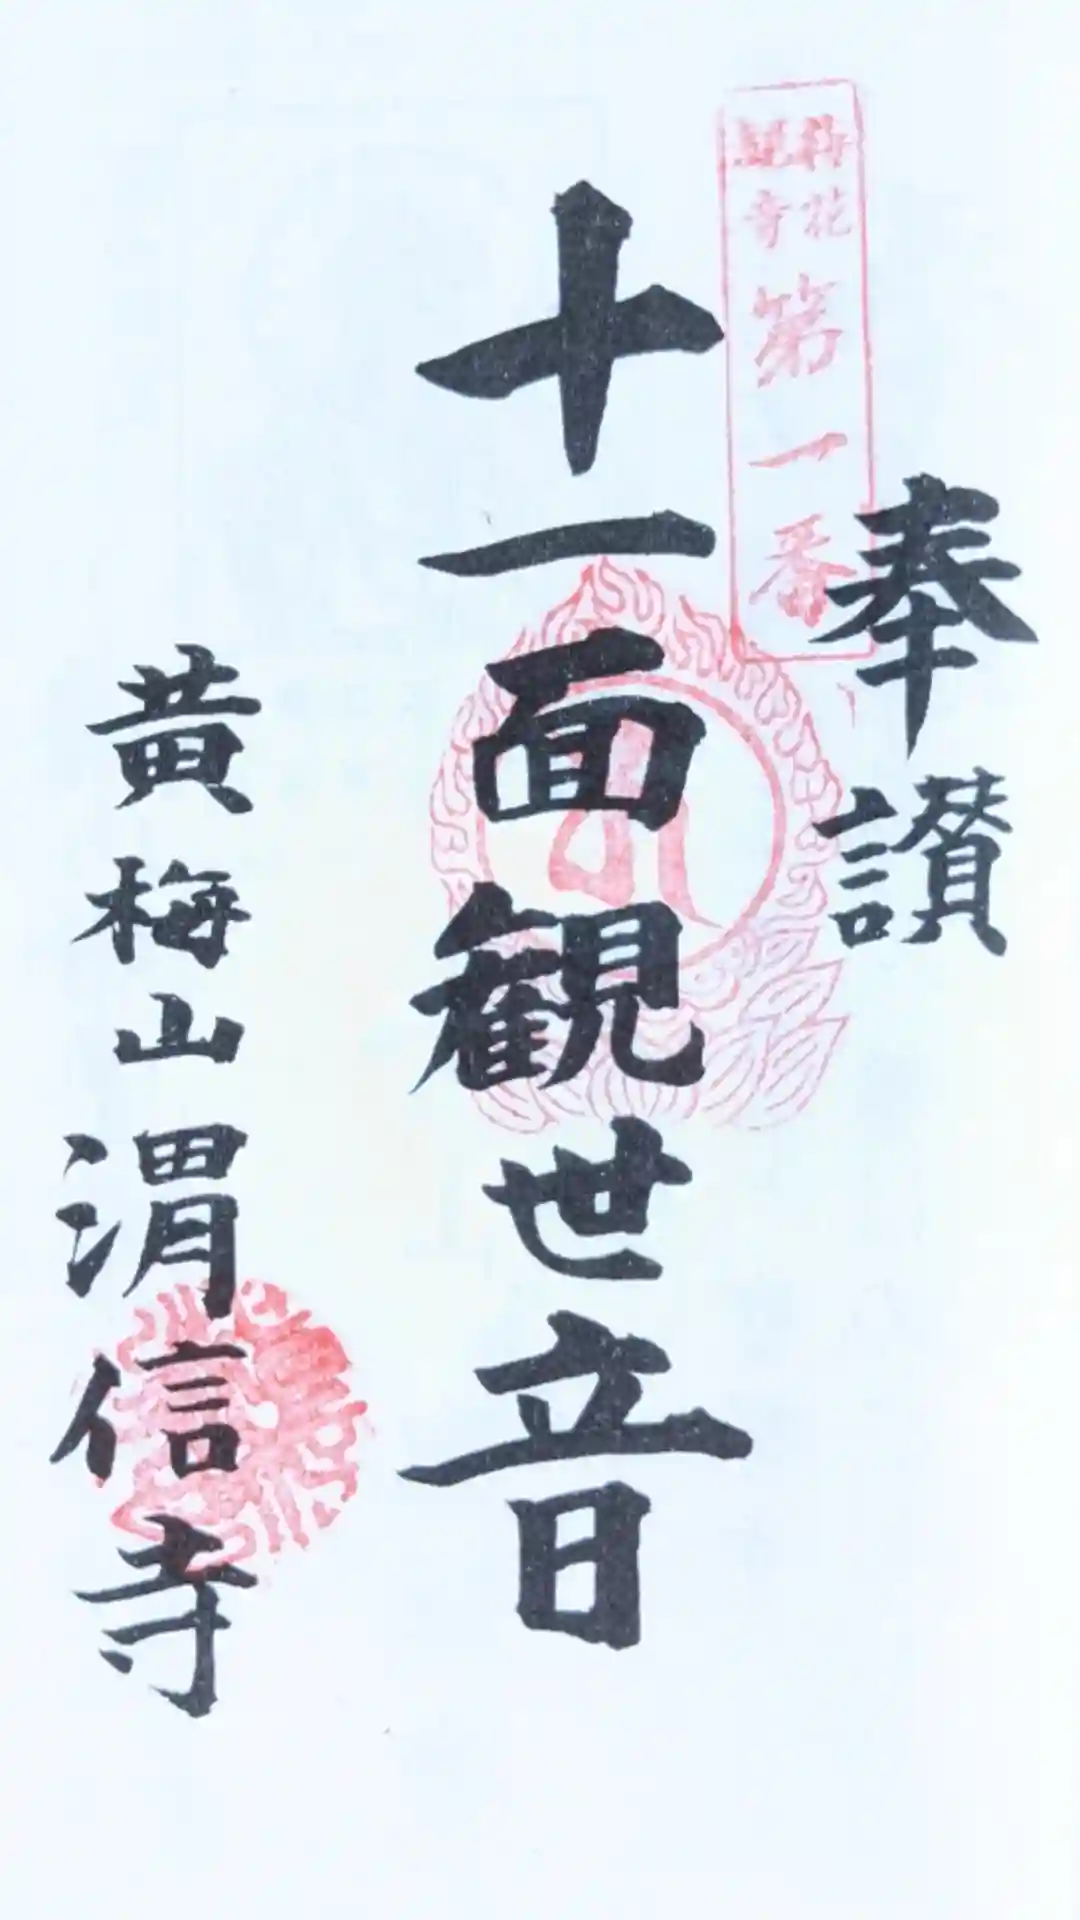 梅花
観音
第一番
奉讃
十一面観世音
黄梅山渭信寺